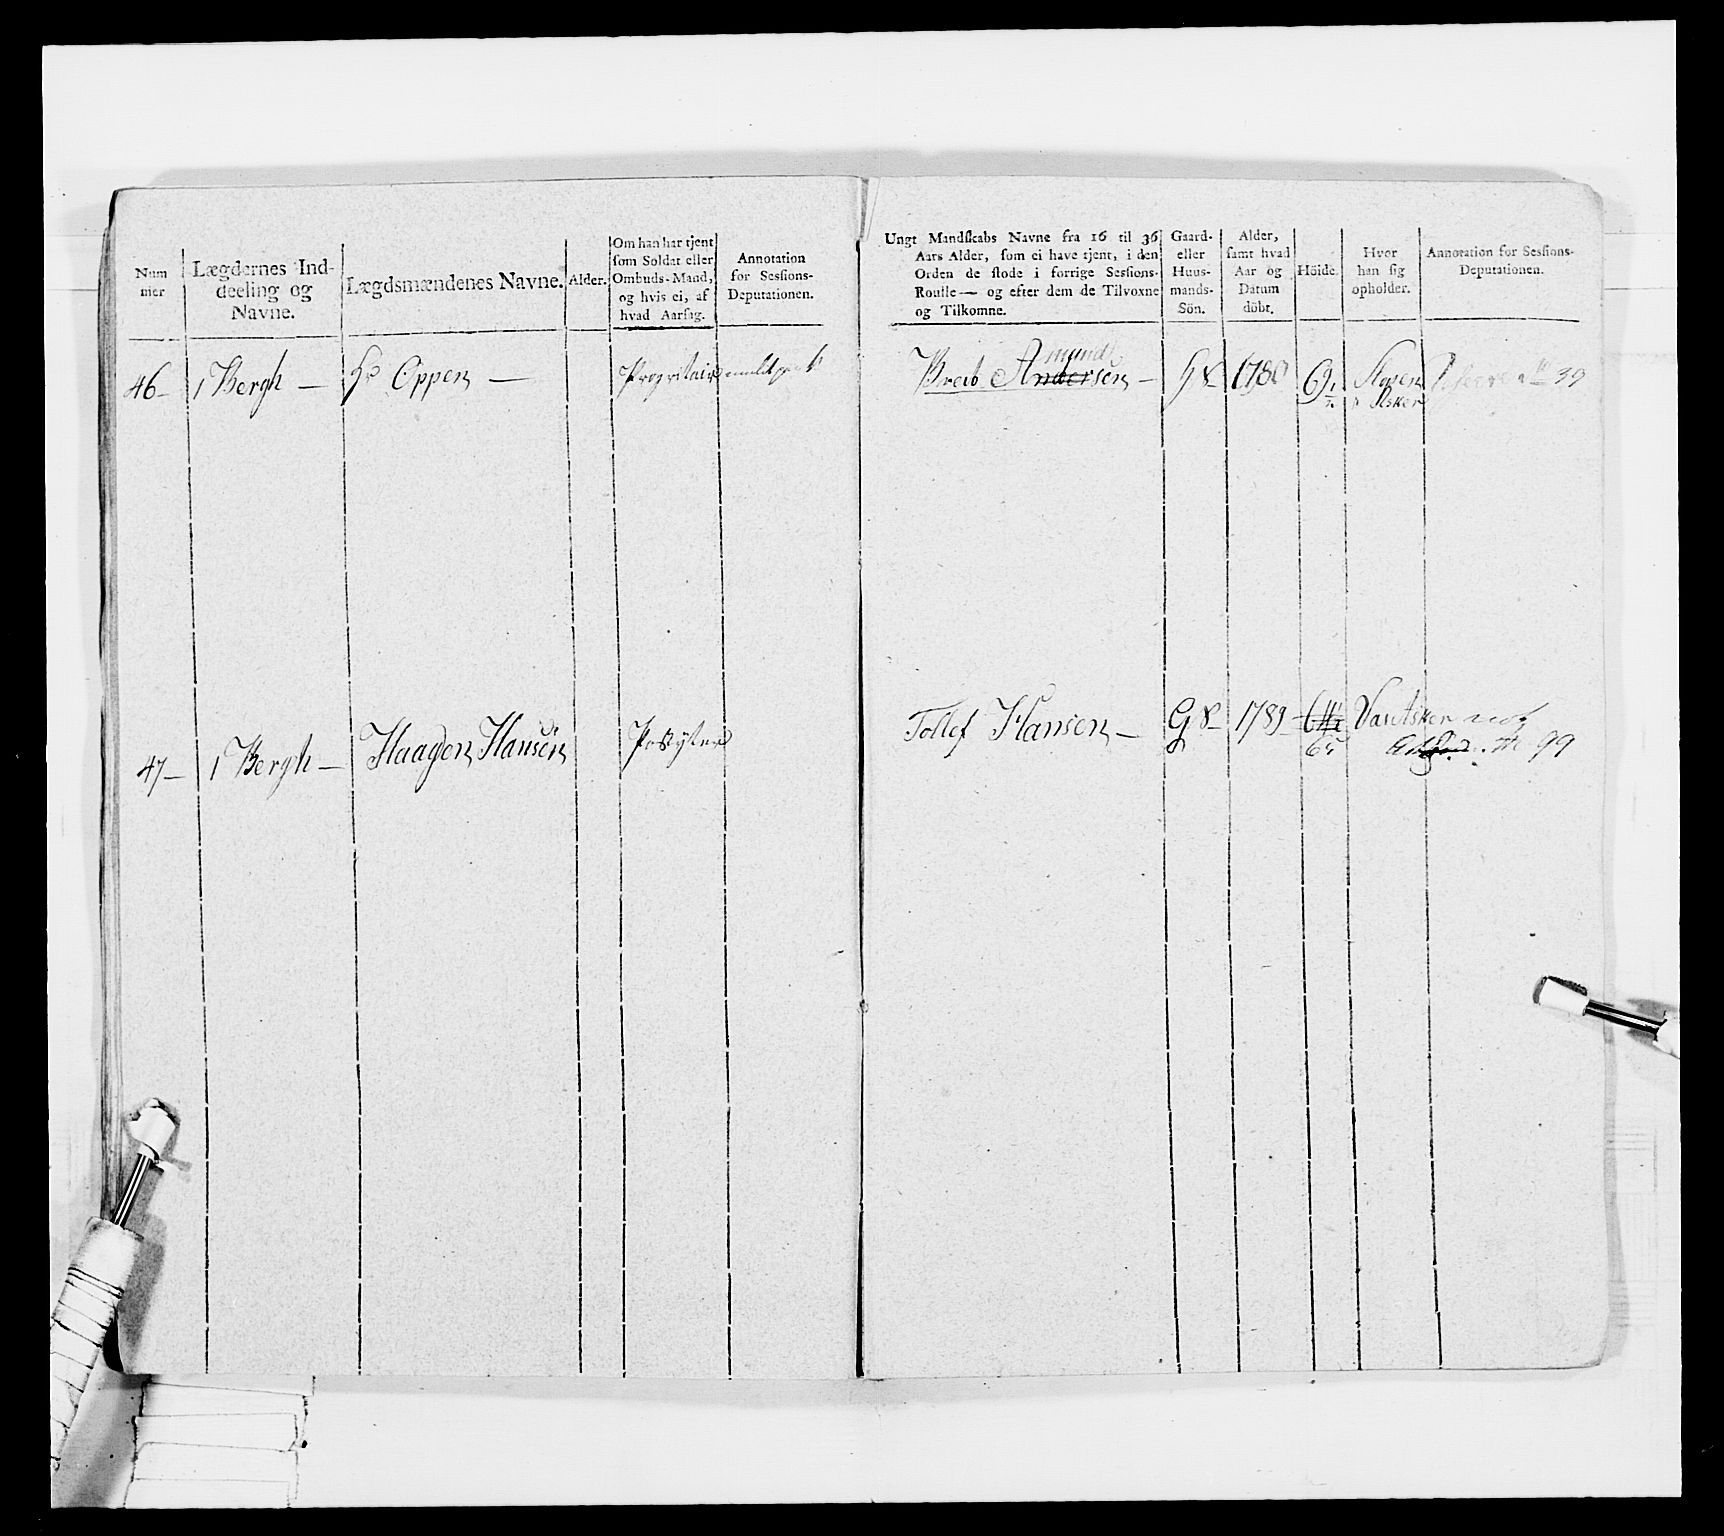 Num
mer
Lægdernes Ind-
deeling og
Navne.
Lægdsmændenes Navne.
Alder.
Om han har tjent
som Soldat eller
Ombuds-Mand,
og hvis ei, af
hvad Aarsag.
Annotation
for Sessions-
Deputationen.
46 1 Bergh — Hr Oppen —
47 — 1 Bergh — Haagen Hansen
Ungt Mandskabs Navne fra 16 til 36
Aars Alder, som ei have tjent, i den
Orden de stode i forrige Sessions-
Roulle — og efter dem de Tilvoxne
og Tilkomne.
Gaard-
eller
Huus-
mands-
Sön.
Alder,
samt hvad
Aar og
Datum
döbt.
Höide.
Hvor
han sig
opholder.
Annotation for Sessions-
Deputationen.
Amunds
Andersen — G S 1788 Asker 39
Tollef Hansen — G S 1789 Asker
99